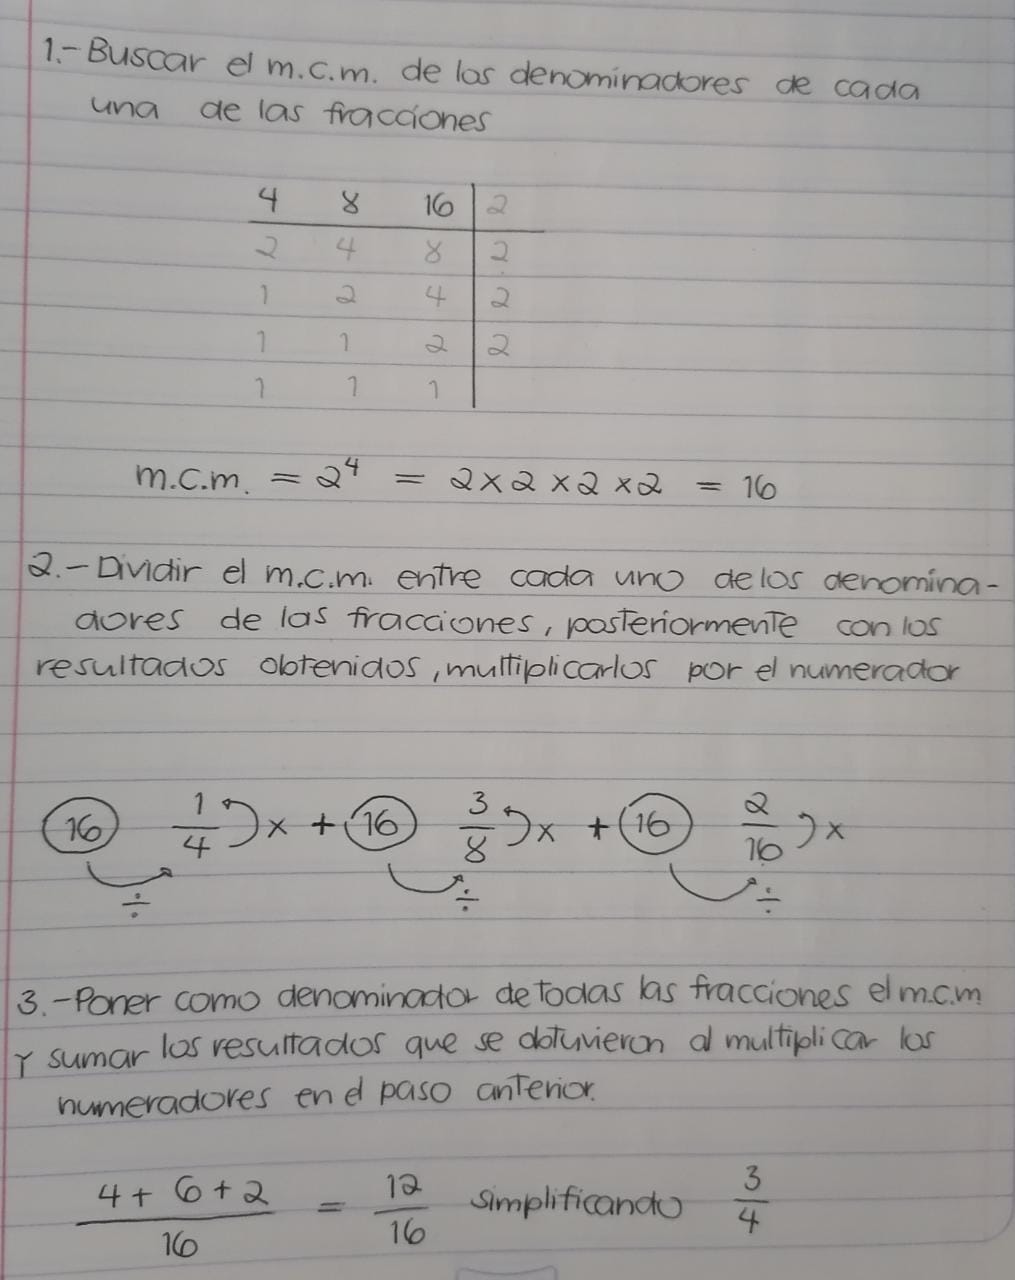 1.- Buscar el m.c.m. de los denominadores de cada
una de las fracciones
4 8 16 | 2
2 4 8 | 2
1 2 4 | 2
1 1 2 | 2
1 1 1 |
m.c.m. = 2⁴ = 2 x 2 x 2 x 2 = 16
2.- Dividir el m.c.m. entre cada uno de los denomina-
dores de las fracciones, posteriormente con los
resultados obtenidos, multiplicarlos por el numerador
16 1/4 x + 16 3/8 x + 16 2/16 x
÷ ÷ ÷
3.- Poner como denominador de todas las fracciones el m.c.m
Y sumar los resultados que se obtuvieron al multiplicar los
numeradores en el paso anterior.
4 + 6 + 2 / 16 = 12/16 simplificando 3/4